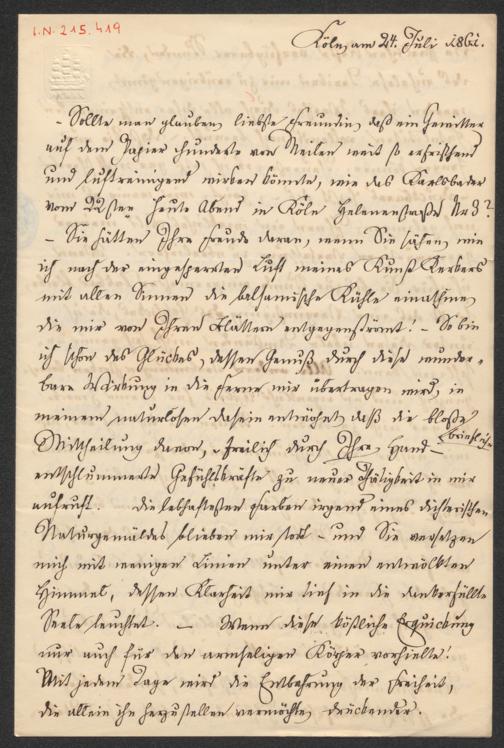 I.N. 215.419
Köln, am 24. Juli 1861.
– Sollte man glauben, liebste Freundin, daß ein Gewitter
auf dem Papier hunderte von Meilen weit so erfrischend
und luftreinigend wirken könnte, wie das Karlsbader
vom 22sten heute Abend in Köln Helenenstraße No 3?
– Sie hätten Ihre Freude daran, wenn Sie sähen, wie
ich nach der eingesperrten Luft meines Kunst Kerkers
mit allen Sinnen die balsamische Kühle einathme,
die mir von Ihren Blättern entgegenströmt! – So bin
ich schon des Glückes, dessen Genuß durch diese wunder-
bare Wirkung in die Ferne mir übertragen wird, in
meinem naturlosen Dasein entwöhnt, daß die bloße
briefliche
Mittheilung davon, – freilich durch Ihre Hand –
entschlummerte Gefühlskräfte zu neuer Thätigkeit in mir
aufruft. Die lebhaftesten Farben irgend eines dichterischen
Naturgemäldes blieben mir todt – und Sie versetzen
mich mit wenigen Linien unter einen entwölkten
Himmel, dessen Klarheit mir tief in die dankerfüllte
Seele leuchtet. – Wenn diese köstliche Erquickung
nur auch für den armseligen Körper vorhielte!
Mit jedem Tage wird die Entbehrung der Freiheit,
die allein ihn herzustellen vermöchte, drückender.